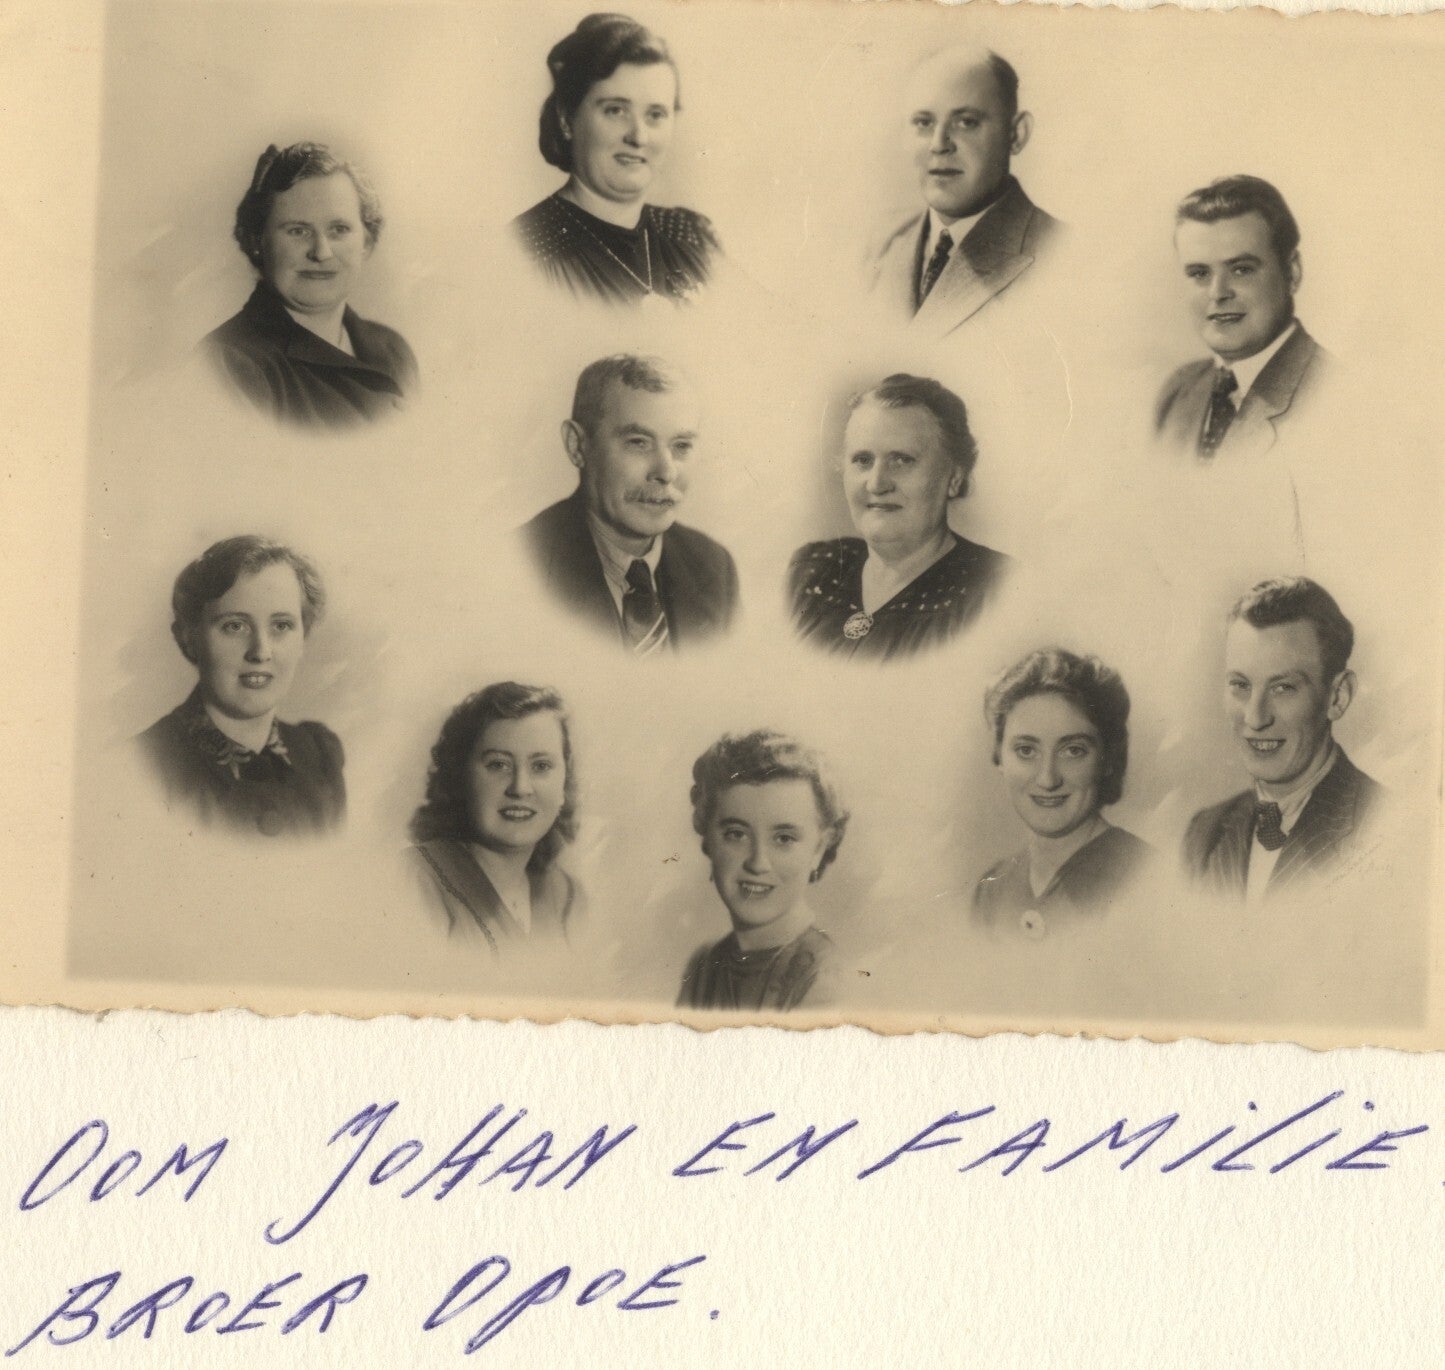 OOM JOHAN EN FAMILIE.
BROER OPOE.